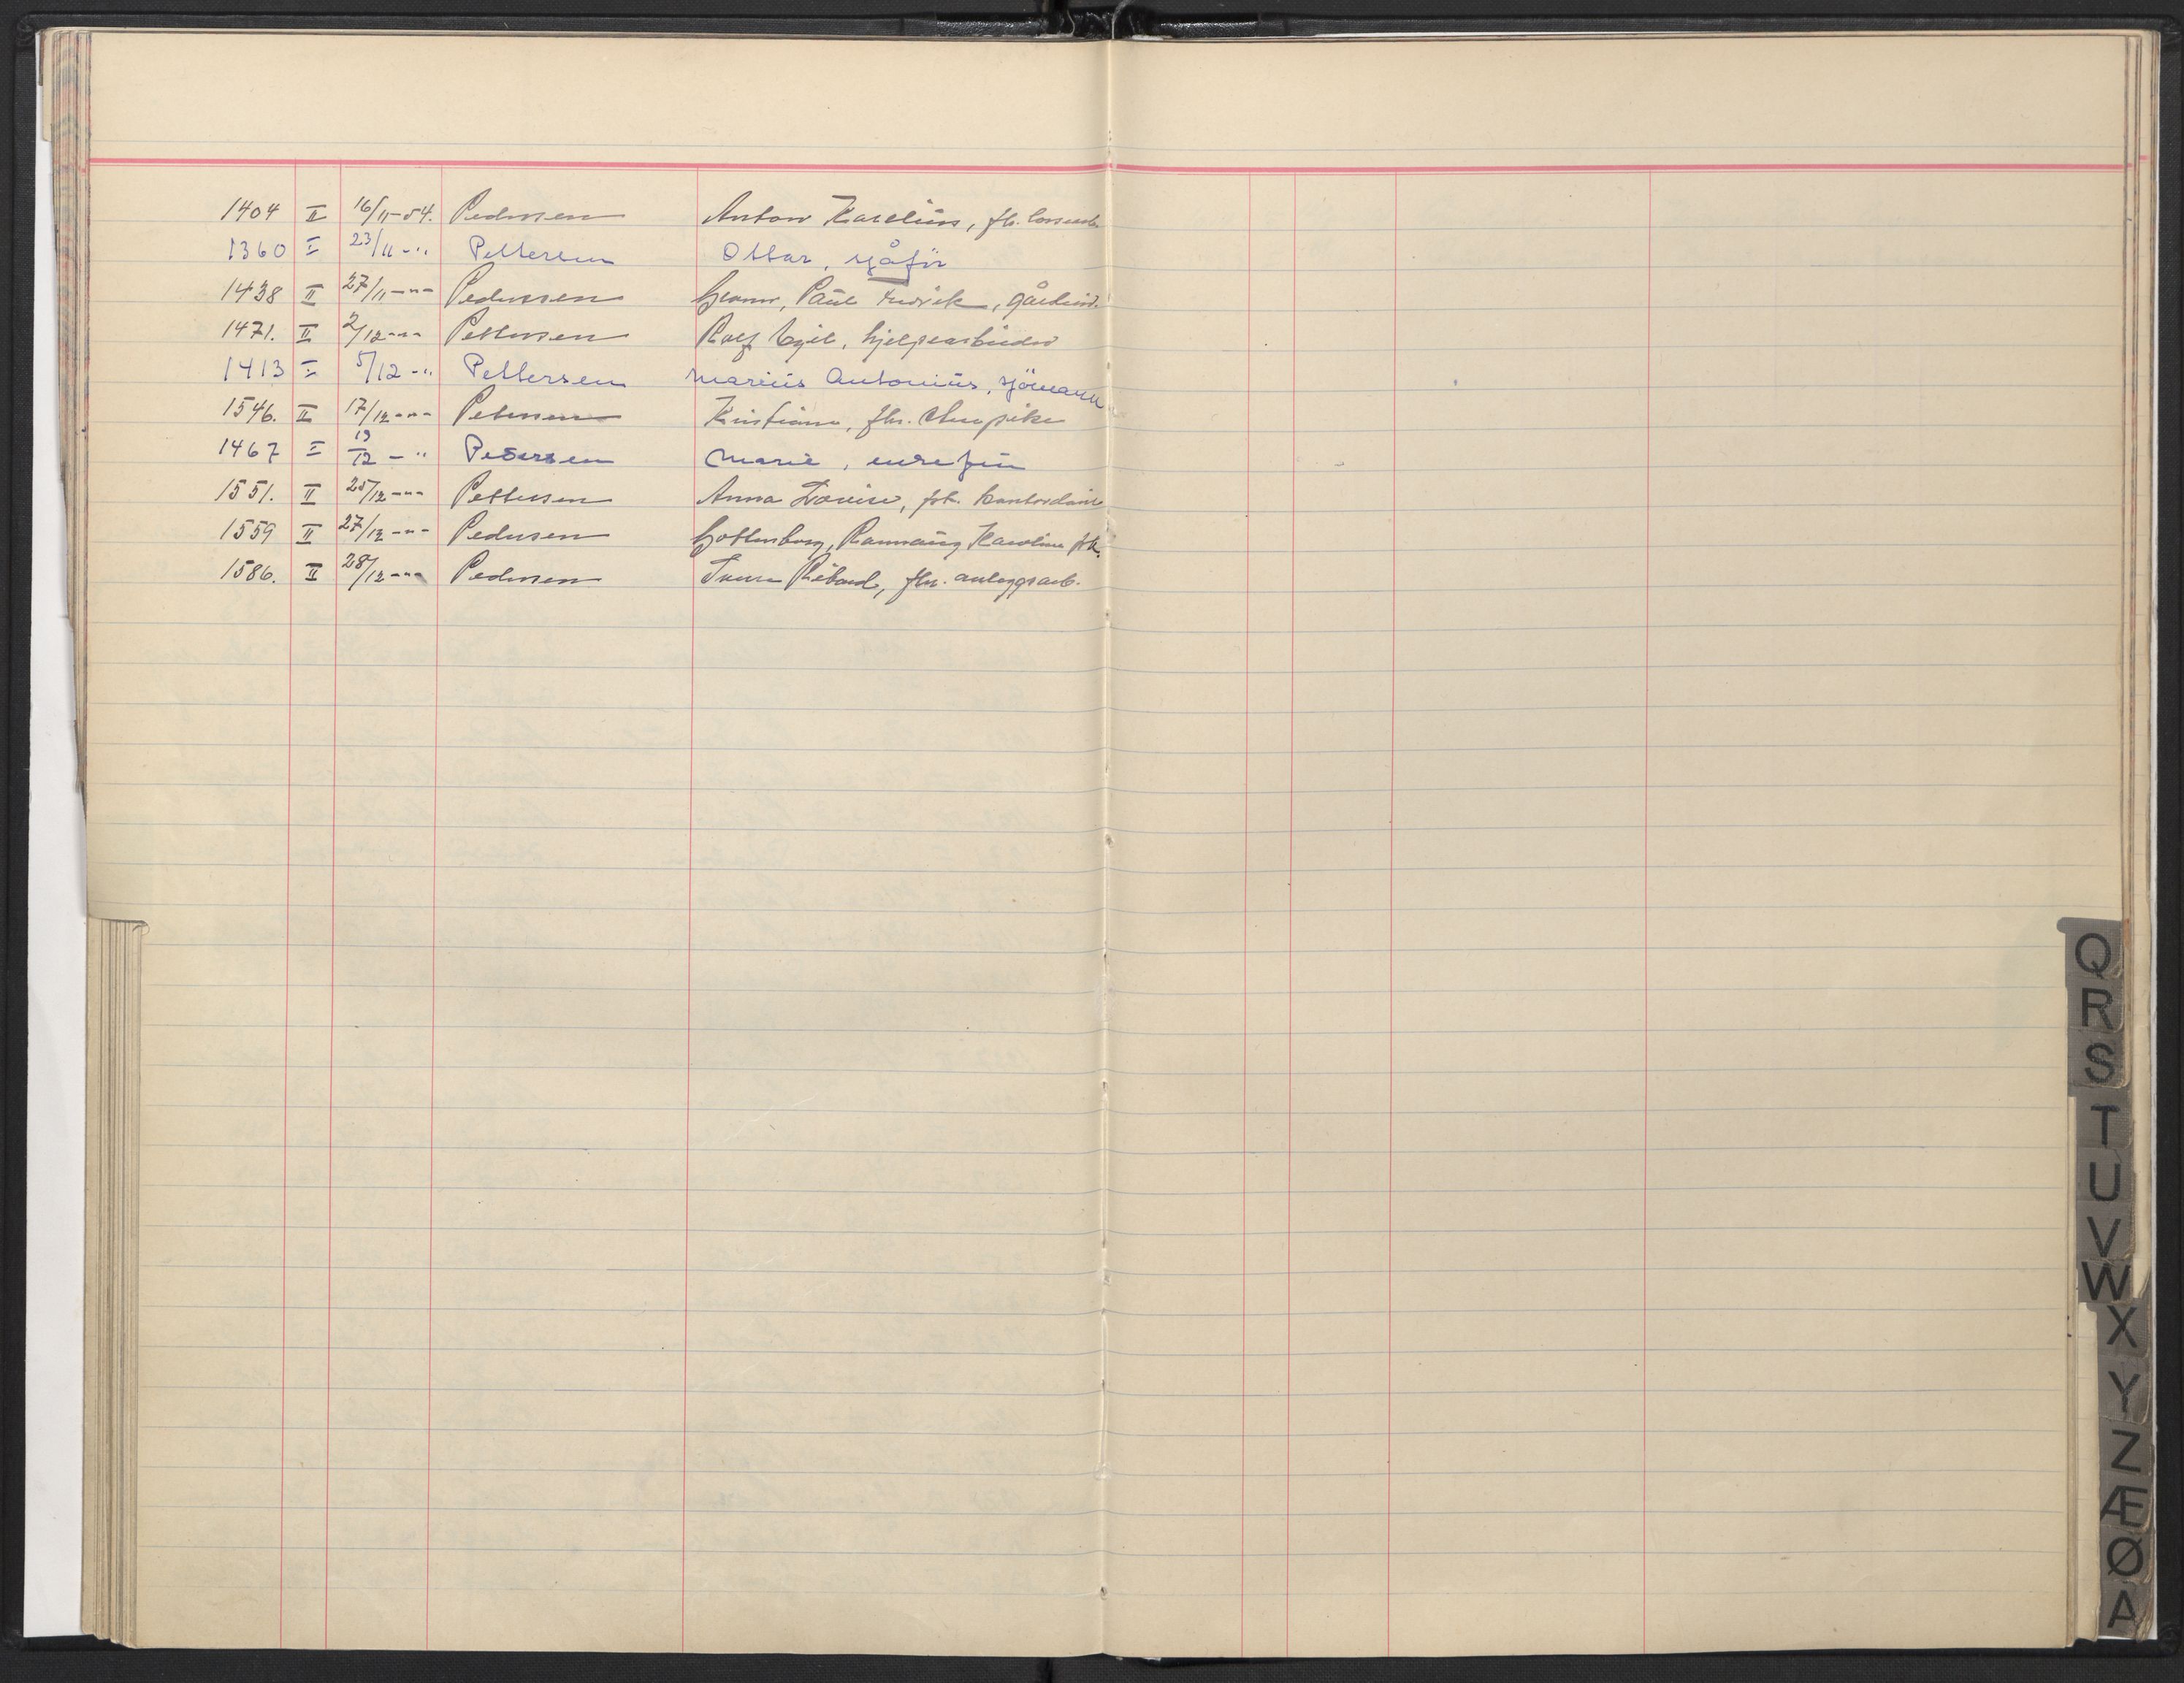 1404 II 16/11-54. Pedersen Anton Karelius, fh.
1360 I 23/11-" Pettersen Ottar, sjåfür
1438 II 27/11-"- Pedersen Paul Fredrik,
1471. II 2/12-"- Pettersen Rolf Egil, hjelpearbeider
1413 I 5/12-" Pettersen Marius Antonius, sjömann
1546. II 17/12-"- Petersen Kristiane, fhv.
1467 I 19/12-" Petersen Marie, enkefru
1551. II 25/12-"- Pettersen Anna Lovise, fhv. kontordame
1559 II 27/12-"- Pedersen Gottenborg, Rannaug Karoline frk.
1586. II 28/12-"- Pedersen Rikard, fhv. anleggsarb.
Q
R
S
T
U
V
W
X
Y
Z
Æ
Ø
A